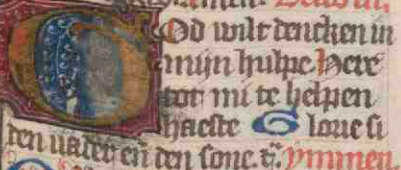 God wilt dencken in
mijn hulpe Here
tot mi te helpen
haeste Glorie si
den vader eñ den sone. ꝛc̄. ymmen